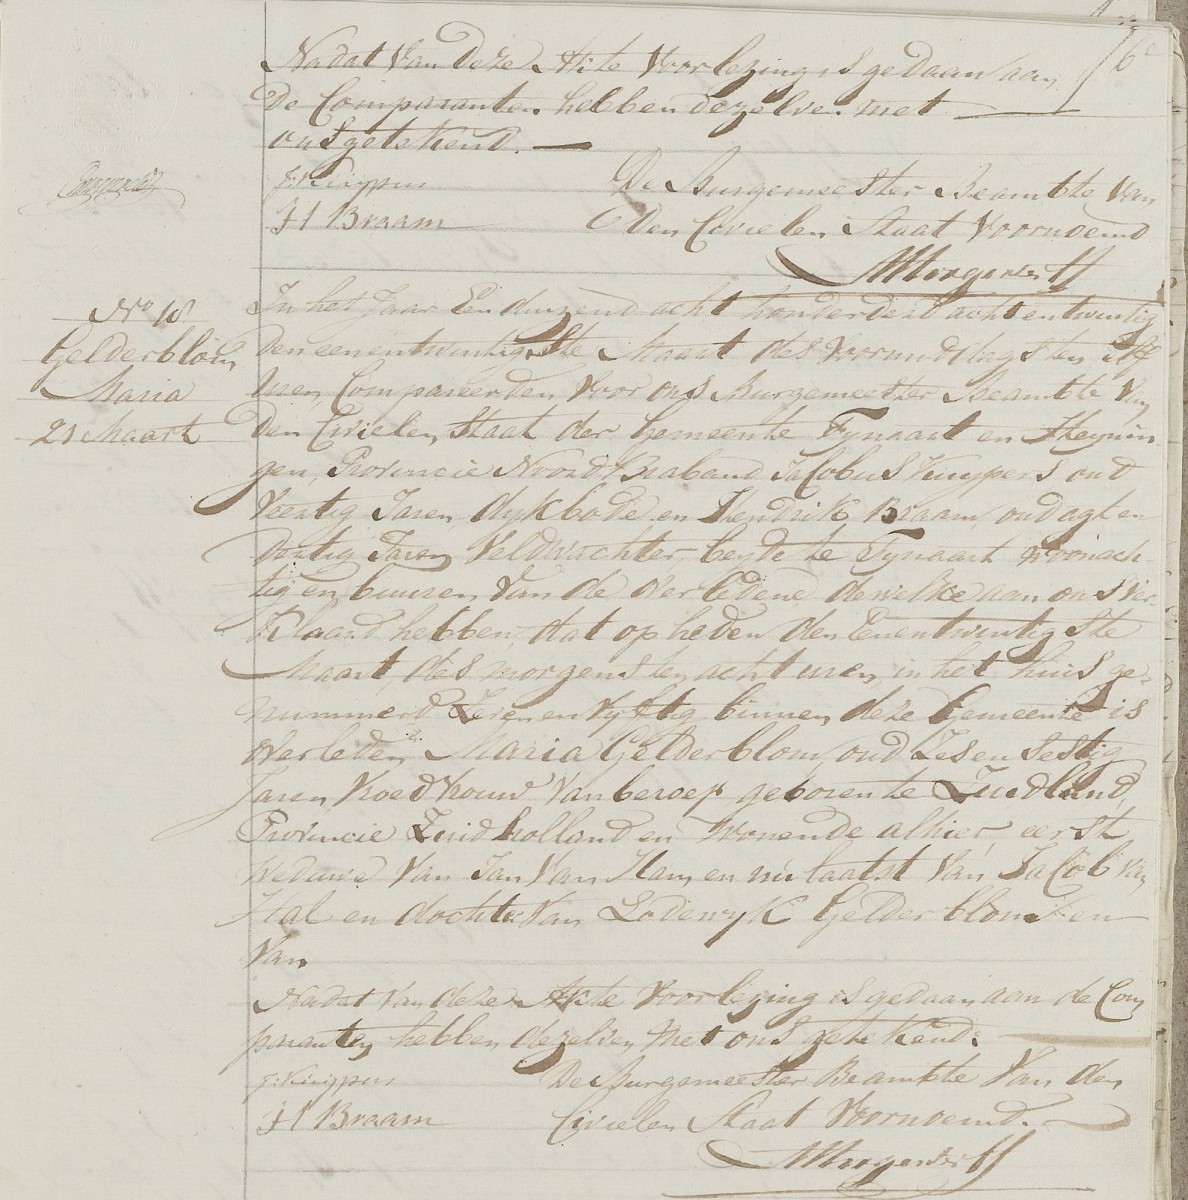 6e
Nadat van deze Akte Voorlezing is gedaan aan
De Comparanten hebben dezelve met
ons getekend.
J: Kuijpers
De Burgemeester Beambte van
H Braam
Den Civielen Staat Voornoemd
No 18
Gelderblom
Maria
21 Maart
In het Jaar Eenduizend acht honderd en achtentwintig
Den eenentwintigste Maart des voormiddags ten elf
uren, Compareerden Voor ons Burgemeester Beambte Van
Den Civielen Staat der Gemeente Fynaart en Heynin
gen, Provincie Noord Braband Jacobus Kuypers oud
Veertig Jaren dykbode en Hendrik Braam oud agt en
Dertig Jaren Veldwachter, beyde te Fynaart woonach
tig en buuren van de overledene dewelke aan ons ver-
klaard hebben, dat op heden den Eenentwintigste
Maart des morgens ten acht uren in het huis ge-
nummerd Zevenenvyftig binnen deze Gemeente is
overleden Maria Gelderblom oud Zes en Sestig
Jaren Vroedvrouw van beroep geboren te Zuidland
Provincie Zuidholland en Wonende alhier, eerst
Weduwe Van Jan Van Ham en nu laatst Van Jacob Van
Hal en dochter van Lodewyk Gelderblom en
Van
Nadat Van deze Akte Voorlezing is gedaan aan de Com
paranten hebben dezelven met ons getekend.
J: Kuijpers
De Burgemeester Beambte Van den
H Braam
Civielen Staat Voornoemd.